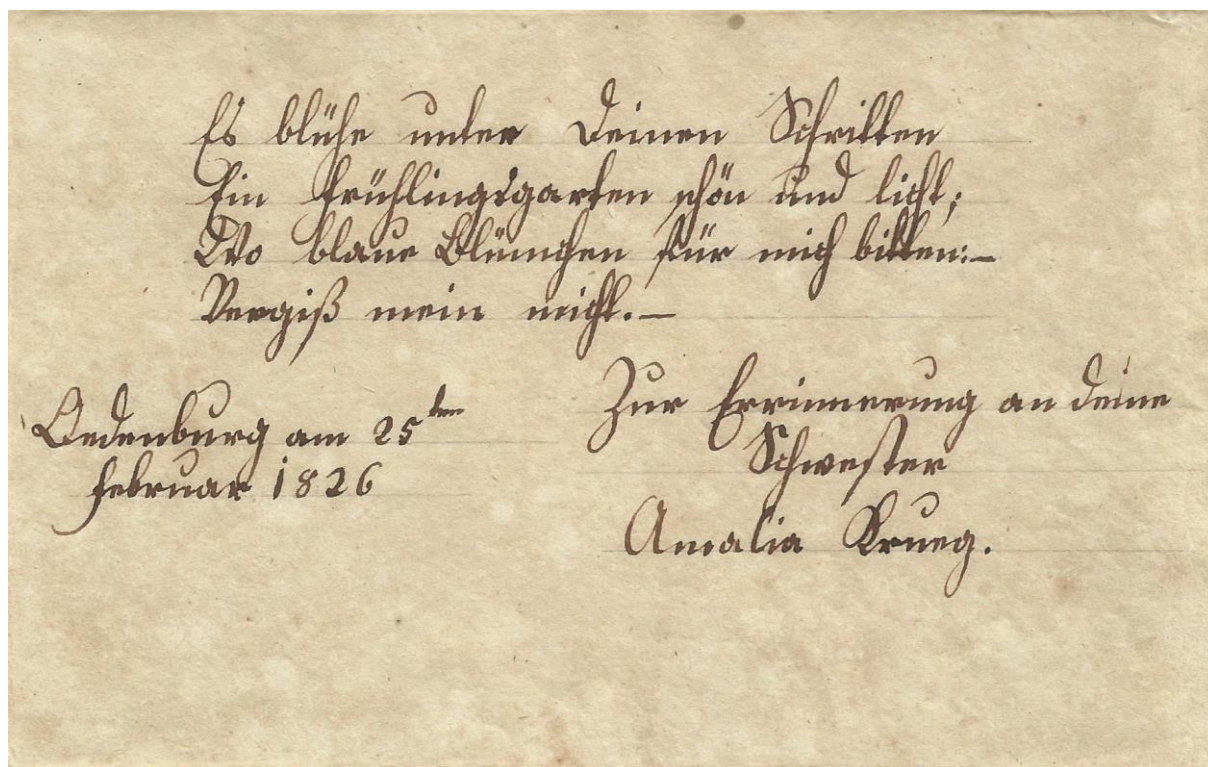 Es blühe unter Deinen Schritten
Ein Frühlingsgarten schön und licht;
Wo blaue Blümchen für mich bitten:–
Vergiß mein nicht.–
Oedenburg am 25ten
Februar 1826
Zur Errinnerung an deine
Schwester
Amalia Krueg.